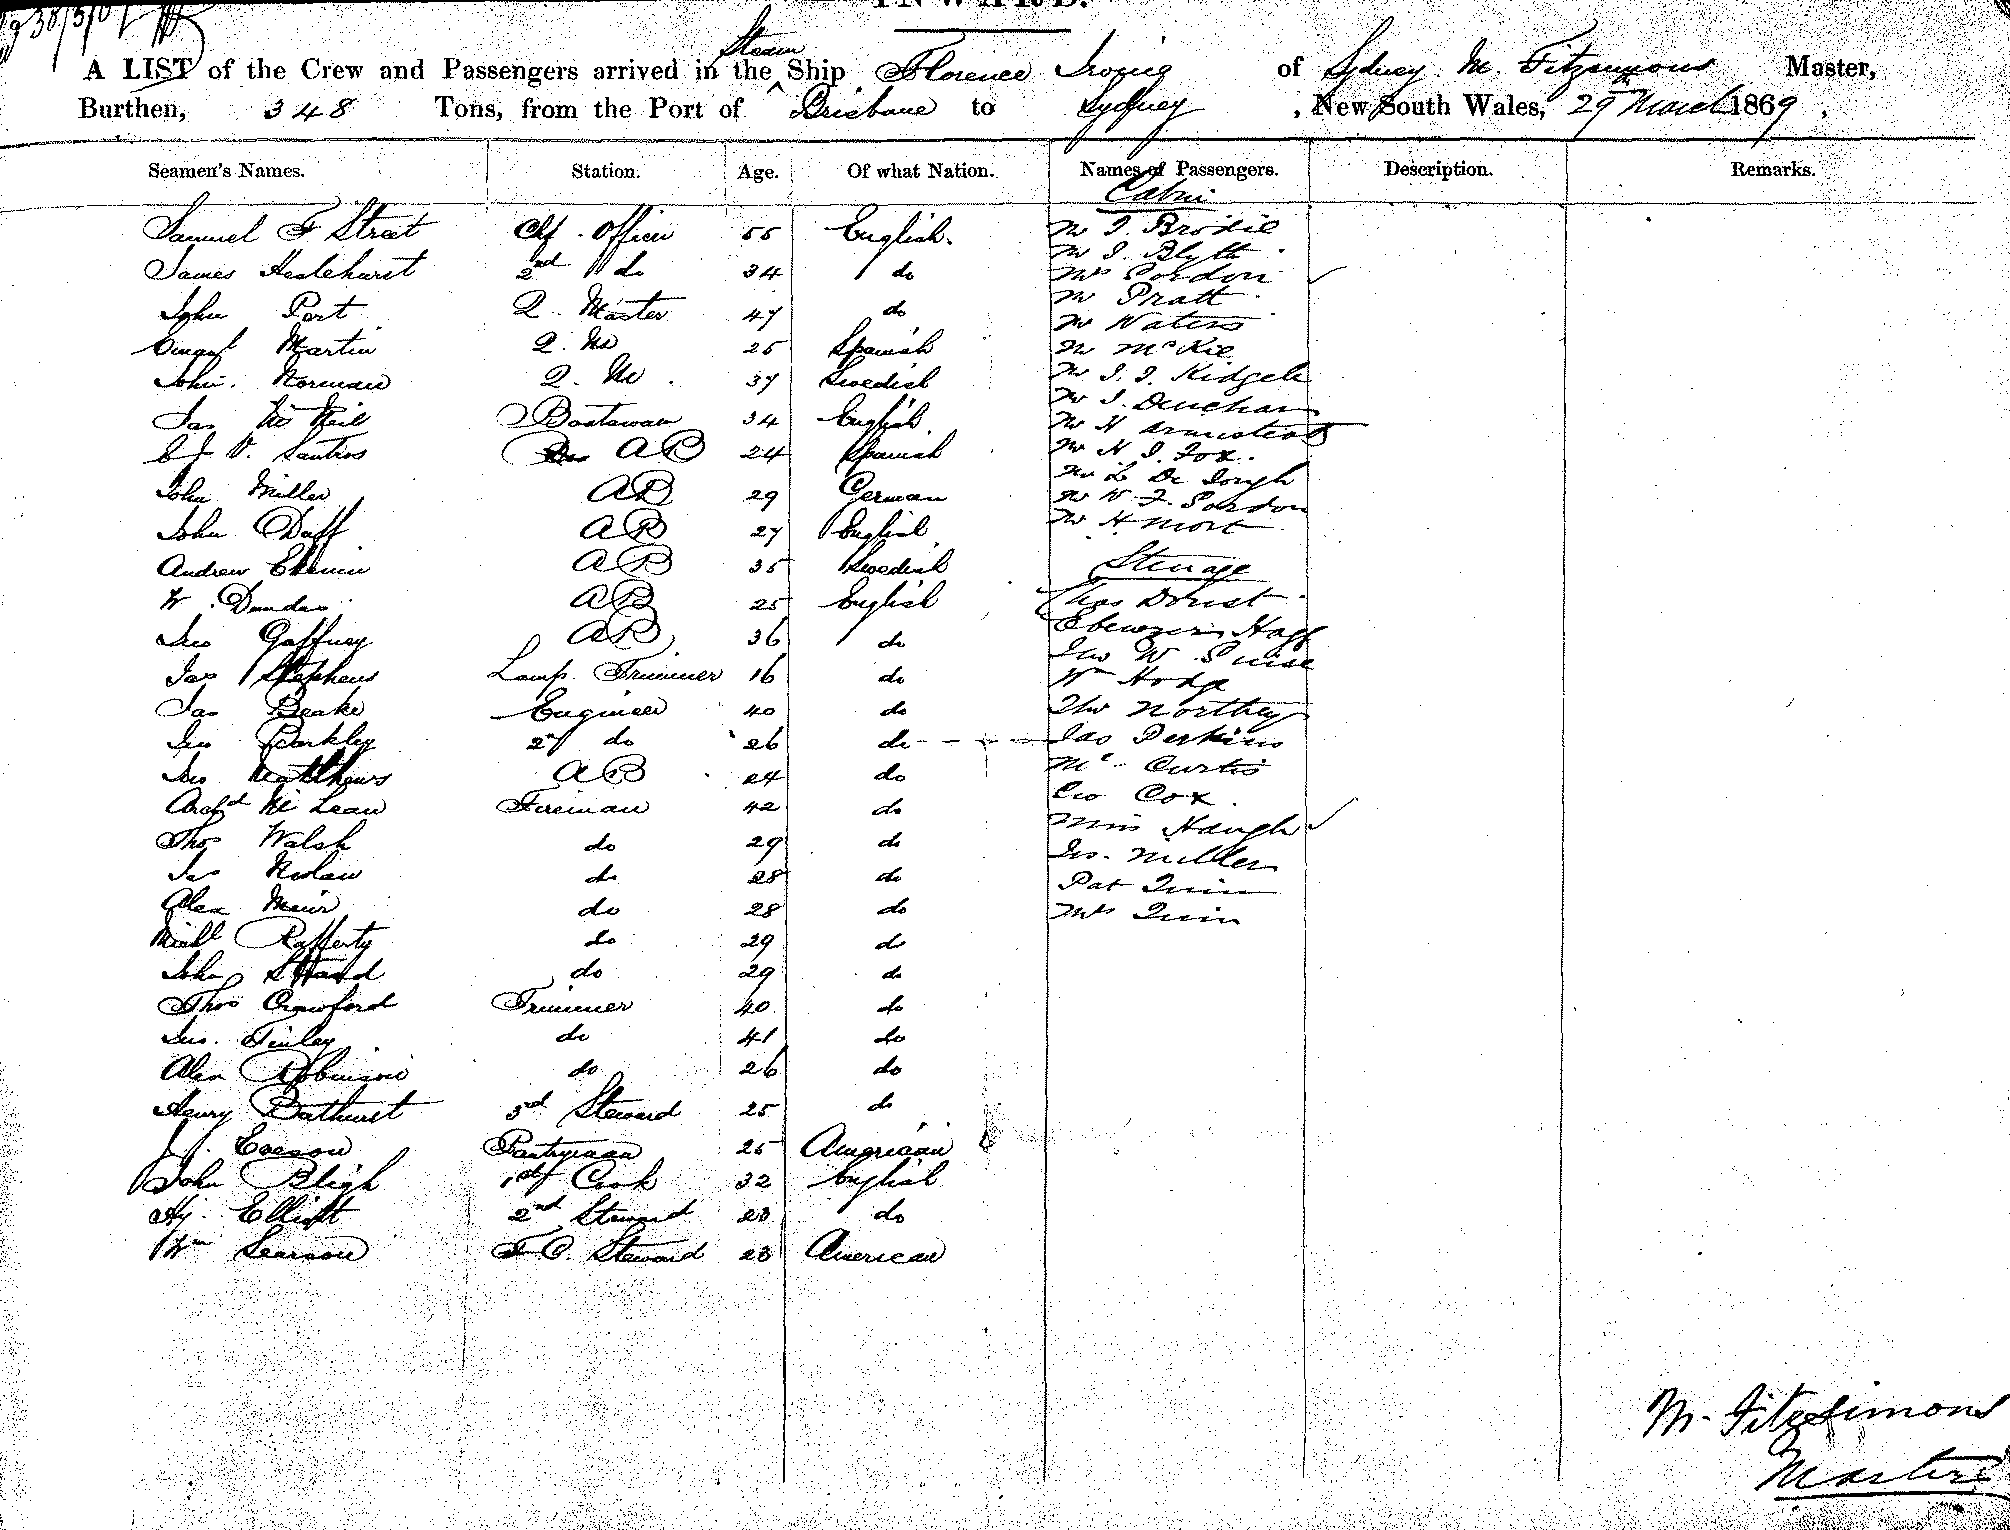 INWARD.
A LIST of the Crew and Passengers arrived in the Steam Ship Florence Irving of Sydney M. Fitzsimons Master,
Burthen, 348 Tons, from the Port of Brisbane to Sydney, New South Wales, 29 March 1869.
Seamen's Names. Station. Age. Of what Nation. Names of Passengers. Description. Remarks.
Cabin
Samuel F Street Chf. Officer 55 English. Mr J. Brodie
Mr J. Blyth
James Haslehurst 2nd do 34 do Mrs Gordon
John Port Q. Master 47 do Mr Pratt
Mr Waters
Martin Q. M 25 Spanish Mr McKie
John. Norman Q. M. 37 Swedish Mr J. J. Kidgell
Jas McNeil Boatswain 34 English. Mr J. Deuchar
Mr H Armstead
V. Santios AB 24 Spanish Mr H J. Fox.
John Miller AB 29 German Mr L De Jongh
Mr W. F. Gordon
John Duff AB 27 English Mr H Mort
Andrew AB 35 Swedish Steerage
W. Dundas AB 25 English Chas Doust
Jno Gaffney AB 36 do Ebenezer Hagg
Jno W. Guise
Jas Stephens Lamp. Trimmer 16 do Wm Hodge
Jas Beake Engineer 40 do Thos Northey
Jno Barkley 2nd do 26 do Jas Perkins
Jno Matthews AB 24 do Mc Curtis
Archd McLean Fireman 42 do Geo Cox.
Thos Walsh do 29 do Miss Haugh
Jas Nolan do 28 do Jno. Miller
Alex Meir do 28 do Pat Quin
Mrs Quin
Michl Rafferty do 29 do
John Strand do 29 do
Thos Crawford Trimmer 40 do
Jno. Finley do 41 do
Alex Robinson do 26 do
Henry Bathurst 3rd Steward 25 do
J. Eveson Pantryman 25 American
John Bligh 1st Cook 32 English
Hy. Elliott 2nd Steward 23 do
Wm Searson F. C. Steward 23 American
M. Fitzsimons
Master